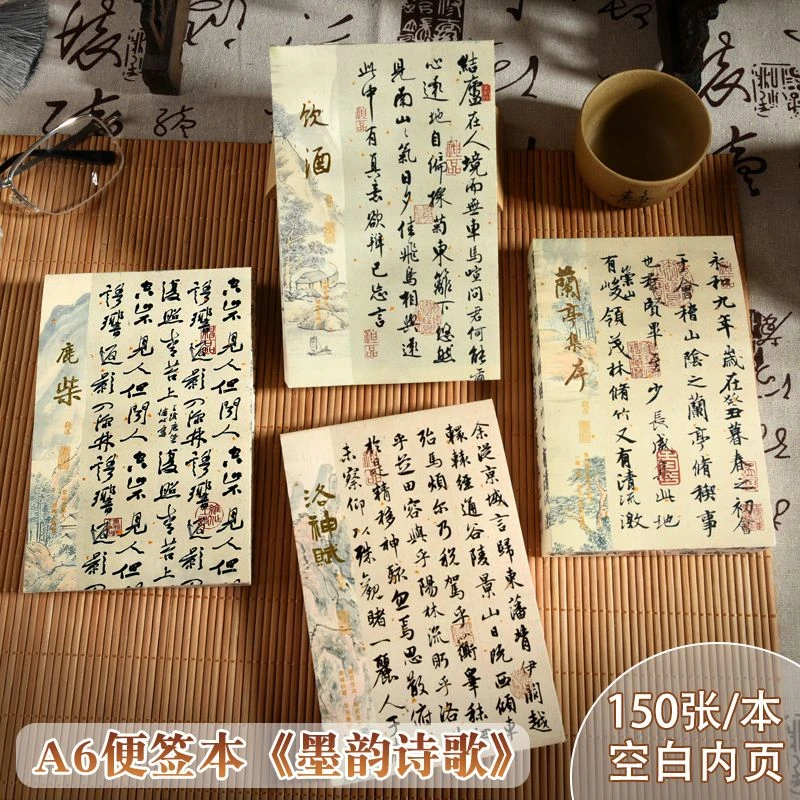 饮酒
結廬在人境而無車馬喧問君何能
心遠地自偏採菊東籬下悠然
見南山〻氣日夕佳飛鳥相與還
此中有真意欲辯已忘言
鹿柴
空山不見人但聞人空山不見人但
語響返影入深林語響返影
復照青苔上復照青苔上
空山不見人但聞人空山不見人但
語響返影入深林語響返影
蘭亭集序
永和九年歲在癸丑暮春之初會
于會稽山陰之蘭亭脩禊事
也羣賢畢至少長咸集此地
有崇山峻領茂林脩竹又有清流激
洛神賦
余從京域言歸東藩背伊闕越
轘轅經通谷陵景山日既西傾車
殆馬煩爾乃稅駕乎蘅皋秣
乎芝田容與乎陽林流眄乎洛
於是精移神駭忽焉思散俯
未察仰以殊觀睹一麗人于
A6便签本《墨韵诗歌》
150张/本
空白内页